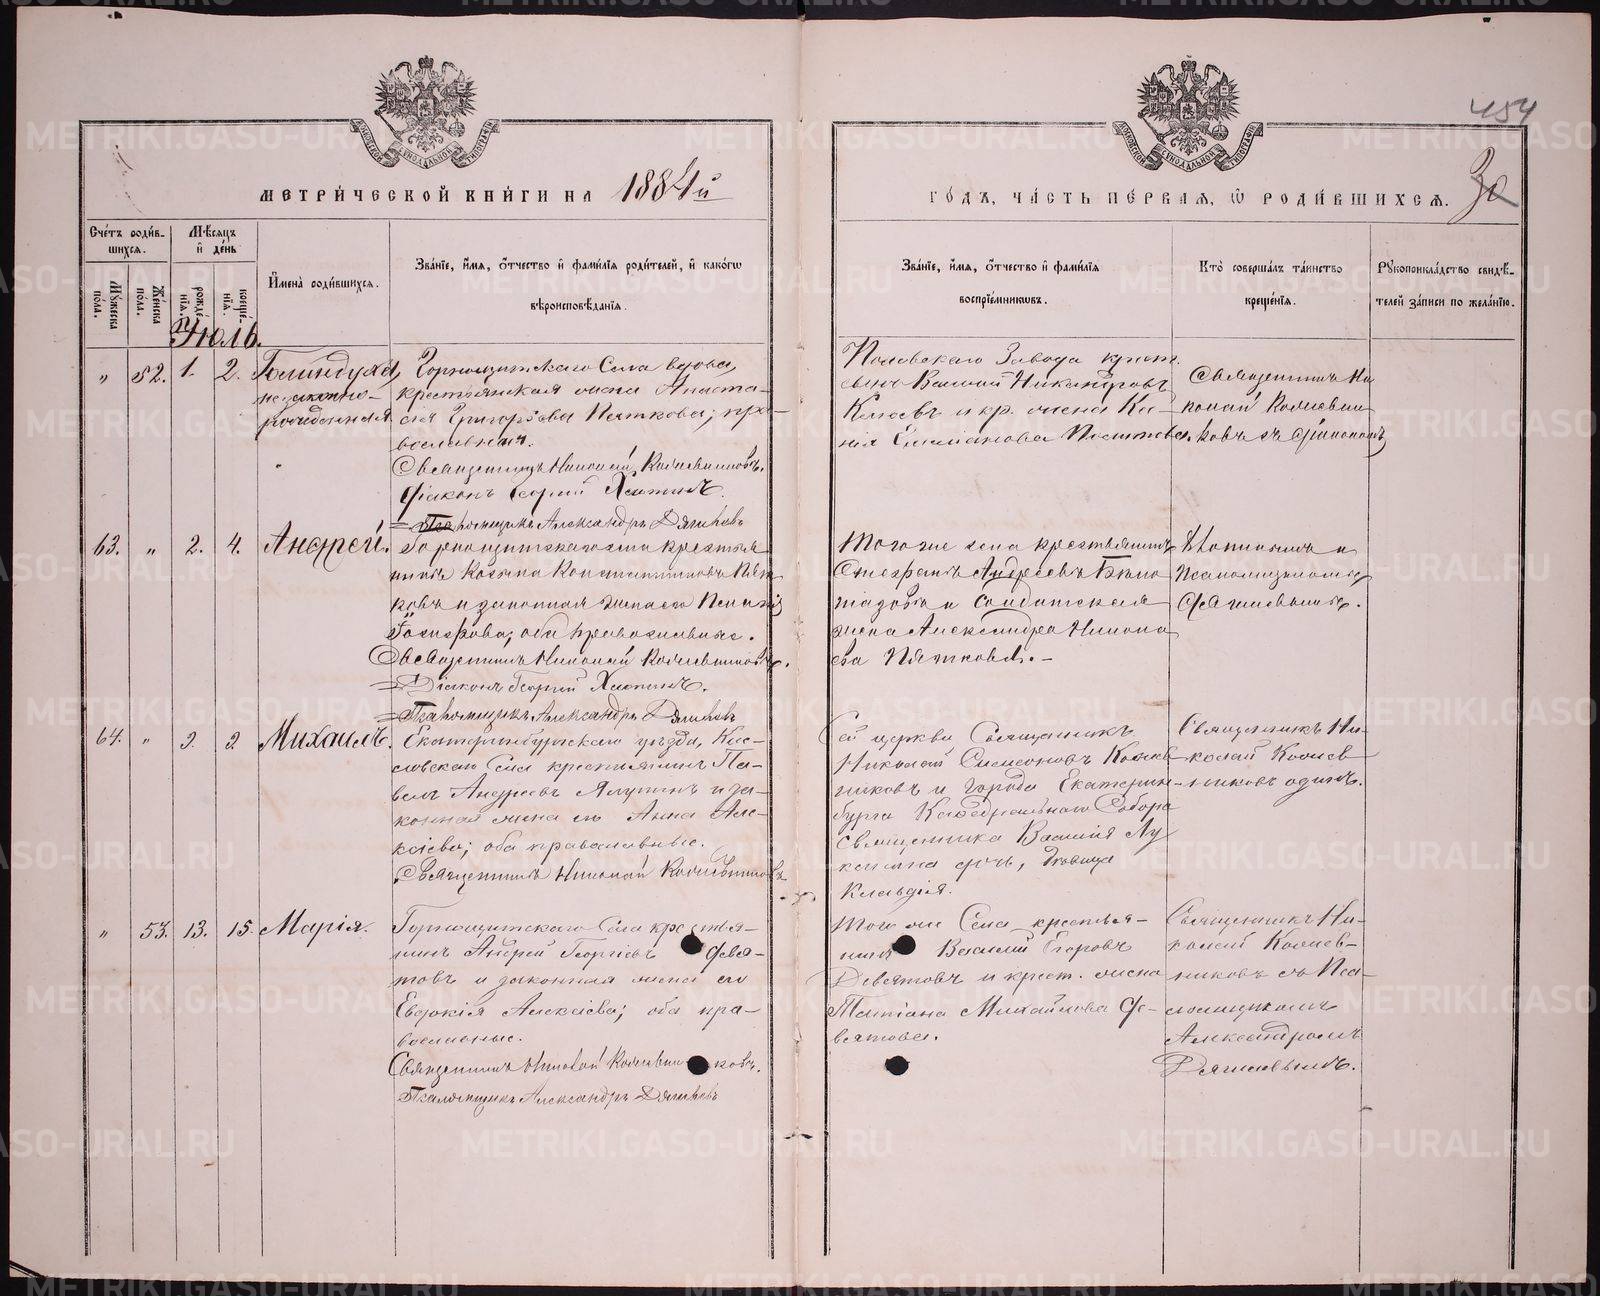 454
МЕТРИ́ЧЕСКОЙ КНИ́ГИ НА 1884й
ГО́ДЪ, ЧА́СТЬ ПЕ́РВАЯ, Ѡ҆ РОДИ́ВШИХСЯ.
30
Сче́тъ роди́в-
шихся.
Мѣсяцъ
и҆ де́нь
Мꙋжеска
по́ла.
Же́нска
по́ла.
рожде́-
нїя.
креще́-
нїя.
И҆мена̀ роди́вшихся.
Зва́нїе, и҆́мя, ѻ҆́тчество и҆ фами́лїя роди́телей, и҆ како́гѡ
вѣроисповѣ́данїя.
Зва́нїе, и҆́мя, ѻ҆́тчество и҆ фами́лїя
воспрїе́мниковъ.
Кто̀ соверша́лъ та́инство
креще́нїя.
Рꙋкоприкла́дство свидѣ́-
телей за́писи по жела́нїю.
Июль.
„ 52. 1. 2. Голиндуха,
незаконно-
рожденная
Горнощитскаго Села вдова,
крестьянская жена Анаста-
сія Григорьева Пяткова; пра-
вославная.
Священникъ Николай Кожевниковъ.
Діаконъ Георгій Хлопинъ.
Завода крест.
Василій Никандровъ
и кр. жена
Священникъ Ни
колай Кожевни
ковъ съ діакономъ
63. „ 2. 4. Андрей.
Горнощитскаго села крестья
нинъ Козьма Константиновъ Пят
ковъ и законная жена его
оба православные.
Священникъ Николай Кожевниковъ.
Діаконъ Георгій Хлопинъ.
Псаломщикъ Александръ Дягилевъ
Того же села крестьянинъ
Стефанъ Андреевъ Бѣло
и Солдатская
жена Александра Никола
ева Пяткова.-
64. „ 2. 2. Михаилъ.
Екатеринбургскаго уѣзда, Кос-
Села крестьянинъ Па-
велъ Андреевъ Ялунинъ и за-
конная жена его Анна Алек-
оба православные.
Священникъ Николай Кожевниковъ
Сей церкви Священникъ
Николай Симеоновъ Кожев
никовъ и города Екатерин-
бурга Каѳедральнаго Собора
священника Василія Лу
дочь, дѣвица
Клавдія.
Священникъ Ни-
колай Кожев-
никовъ одинъ.
„ 53. 13. 15. Марія.
Горнощитскаго Села крестья-
нинъ Андрей Георгіевъ Девя-
товъ и законная жена его
Евдокія Алексіева; оба пра-
вославные.
Священникъ Николай Кожевниковъ.
Псаломщикъ Александръ Дягилевъ
Того же Села крестья-
нинъ Василій Егоровъ
Девятовъ и крест. жена
Татіана Михайлова Де-
вятова.
Священникъ Ни-
колай Кожев-
никовъ съ Пса-
ломщикомъ
Александромъ
Дягилевымъ.